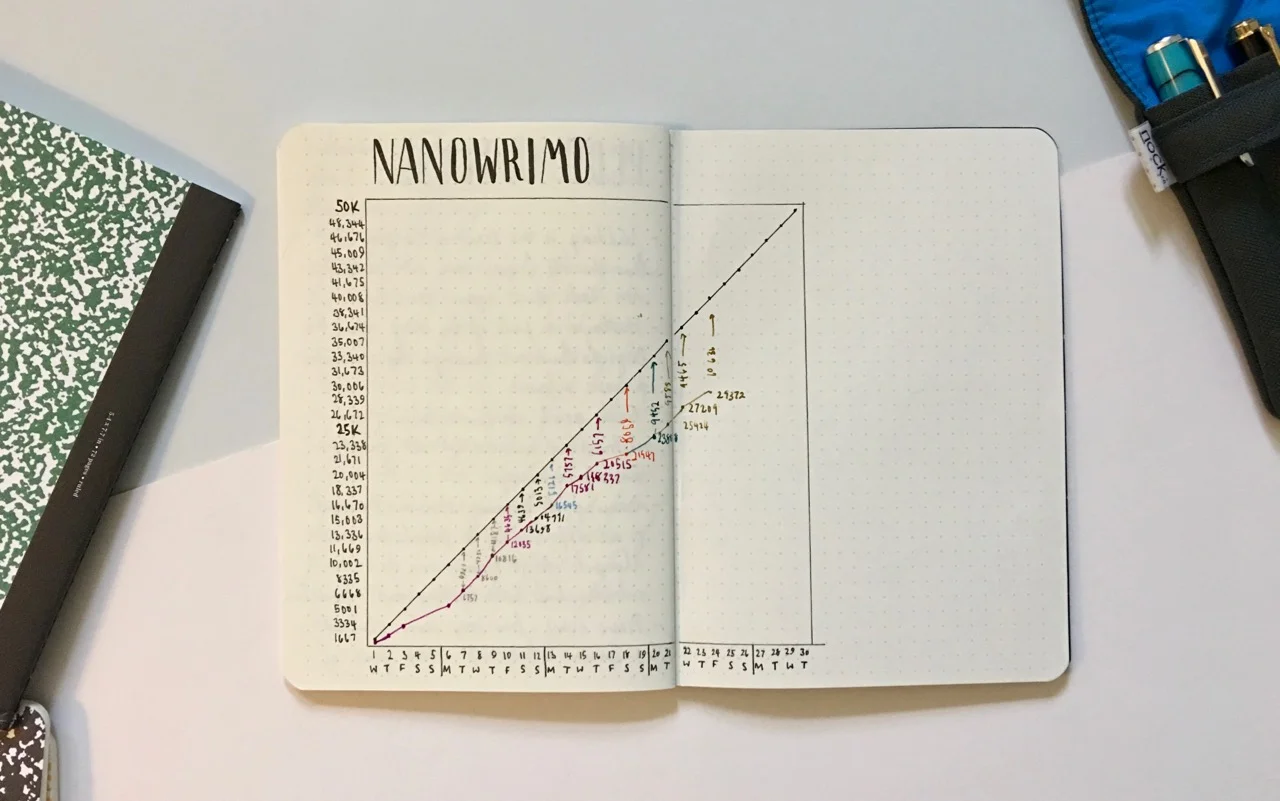 NANOWRIMO
50K
48,344
46,676
45,009
43,342
41,675
40,008
38,341
36,674
35,007
33,340
31,673
30,006
28,339
26,672
25K
23,338
21,671
20,004
18,337
16,670
15,003
13,336
11,669
10,002
8335
6668
5001
3334
1667
29372
27209
25424
21547
20515
17581
16545
13698
12035
8600
6757
10,636
6465
9452
8059
6157
5757
5013
4639
1 2 3 4 5 6 7 8 9 10 11 12 13 14 15 16 17 18 19 20 21 22 23 24 25 26 27 28 29 30
W T F S S M T W T F S S M T W T F S S M T W T F S S M T W T
nock
5.1 x 7.7 in • 72 pages • ruled